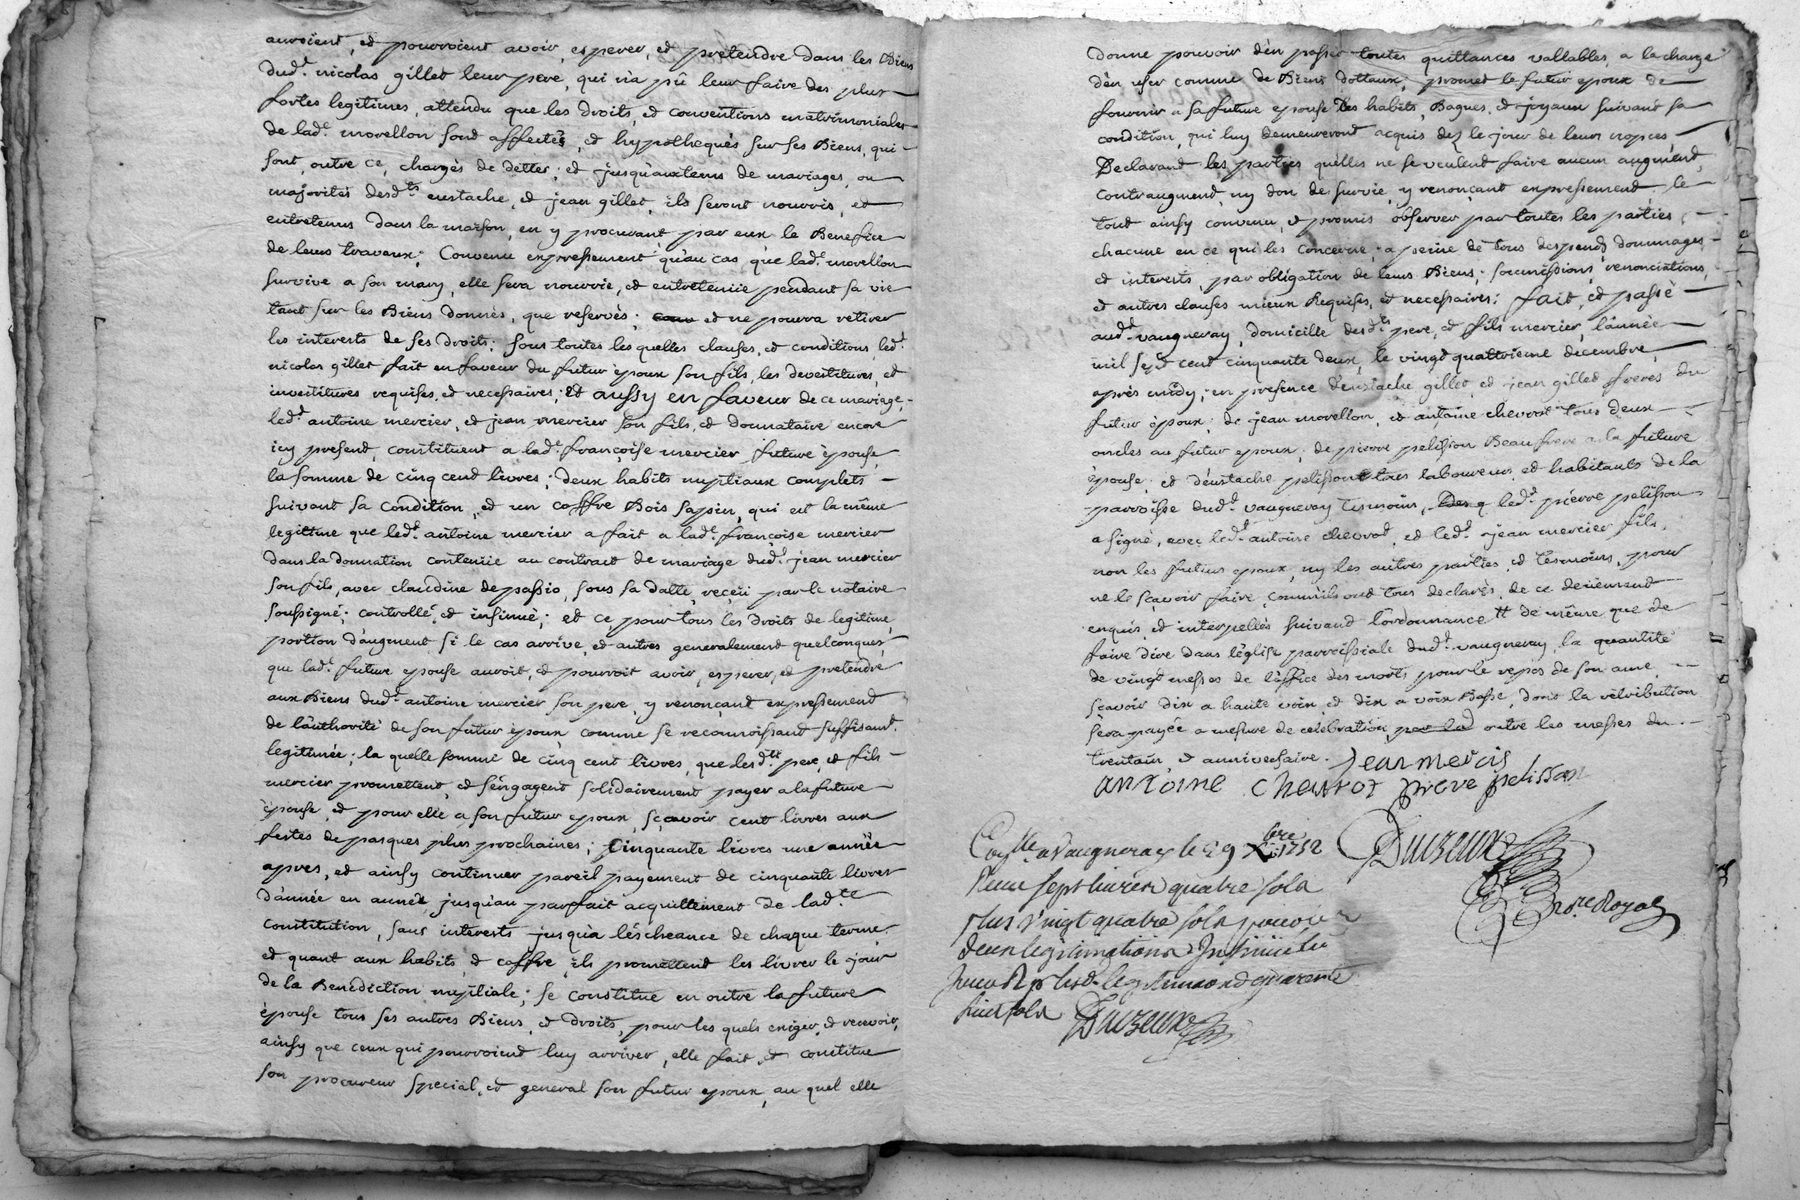 auroient, et pourroient avoir, esperer, et pretendre dans les Biens
dud.t nicolas gillet leur pere, qui n'a pû leur faire des plus
fortes legitimes, attendu que les droits, et conventions matrimoniales
de lad.e morellon sont affectés, et hypothequés sur ses Biens, qui
sont, outre ce, chargés de dettes; et jusqu'aux tems de mariages, ou
majorités desd.ts eustache, et jean gillet, ils seront nourris, et
entretenus dans la maison, en y procurant par eux le Benefice
de leurs travaux; Convenu expressement qu'au cas que lad.e morellon
survive a son mary, elle sera nourrie, et entretenüe pendant sa vie
tant sur les Biens donnés, que reservés; et ne pourra retirer
les interests de ses droits; sous toutes les quelles clauses, et conditions led.t
nicolas gillet fait en faveur du futur époux son fils, les devestitures, et
investitures requises, et necessaires; Et aussy en faveur de ce mariage,
led.t antoine mercier, et jean mercier son fils, et donnataire encore
icy present, constituent a lad.e françoise mercier future épouse,
la somme de cinq cent livres; deux habits nuptiaux complets
suivant sa condition, et un coffre Bois sapin, qui est la même
legitime que led.t antoine mercier a fait a lad.e françoise mercier
dans la donnation contenüe au contract de mariage dud.t jean mercier
son fils, avec claudine depassio, sous sa datte, reçeü par le notaire
soussigné; controllé, et insinué; et ce, pour tous les droits de legitime,
portion d'augment si le cas arrive, et autres generalement quelconques,
que lad.e future epouse auroit, et pourroit avoir, esperer, et pretendre
aux Biens dud.t antoine mercier son pere, y renonçant expressement
de l'authorité de son futur époux comme se reconnoissant suffisam.t
legitimée; la quelle somme de cinq cent livres, que lesd.ts pere, et fils
mercier promettent, et s'engagent solidairement payer a la future
épouse, et pour elle a son futur epoux, sçavoir cent livres aux
festes de pasques plus prochaines; Cinquante livres une année
apres, et ainsy continuer pareil payement de cinquante livres
d'année en année jusqu'au parfait acquittement de lad.te
constitution, sans interests jusqu'a l'éscheance de chaque terme;
et quant aux habits, et coffre, ils promettent les livrer le jour
de la Benediction nuptiale; se constitue en outre la future
épouse tous ses autres Biens, et droits, pour les quels exiger, et recevoir,
ainsy que ceux qui pourroient luy arriver, elle fait, et constitue
son procureur special, et general son futur epoux, au quel elle
donne pouvoir d'en passer toutes quittances vallables, a la charge
d'en user comme de Biens dottaux; promet le futur epoux de
fournir a sa future epouse des habits, Bagues, et joyaux suivant sa
condition, qui luy demeureront acquis dez le jour de leurs nopces
Declarant les parties qu'elles ne se veulent faire aucun augment,
contraugment, ny don de survie, y renonçant expressement, le
tout ainsy convenu, et promis observer par toutes les parties,
chacune en ce qui les concerne, a peine de tous despends, dommages,
et interests, par obligation de leurs Biens; soumissions, renonciations,
et autres clauses mieux Requises, et necessaires; fait, et passé
aud.t vaugneray, domicille desd.ts pere, et fils mercier, l'année
mil sept cent cinquante deux, le vingt quattrieme decembre,
après midy; en presence d'eustache gillet, et jean gillet freres du
futur époux; de jean morellon, et antoine chevrot tous deux
oncles au futur epoux; de pierre pelisson Beaufrere a la future
épouse; et d'eustache pelisson tous laboureurs, et habitants de la
parroisse dud.t vaugneray tesmoins, led.t pierre pelisson
a signé, avec led.t antoine chevrot, et led.t jean mercier fils,
non les futurs epoux, ny les autres parties, et tesmoins, pour
ne le sçavoir faire, comm'ils ont tous declarés, de ce deüement
enquis, et interpellés suivant l'ordonnance # de même que de
faire dire dans l'église parroissiale dud.t vaugneray, la quantité
de vingt messes de l'office des morts pour le repos de son ame,
sçavoir dix a haute voix, et dix a voix Basse, dont la retribution
sera payée a mesure de célébration, par led outre les messes du
trentain, et anniversaire. Jean mercis
antoine chevrot piere pelisson
Con.lle a Vaugneray le 29 Xbre 1752
Reçu sept livres quatre sols
plus vingt quatre sols pour
deux legitimations
Duizeux
sols Duizeux
no.re Royal